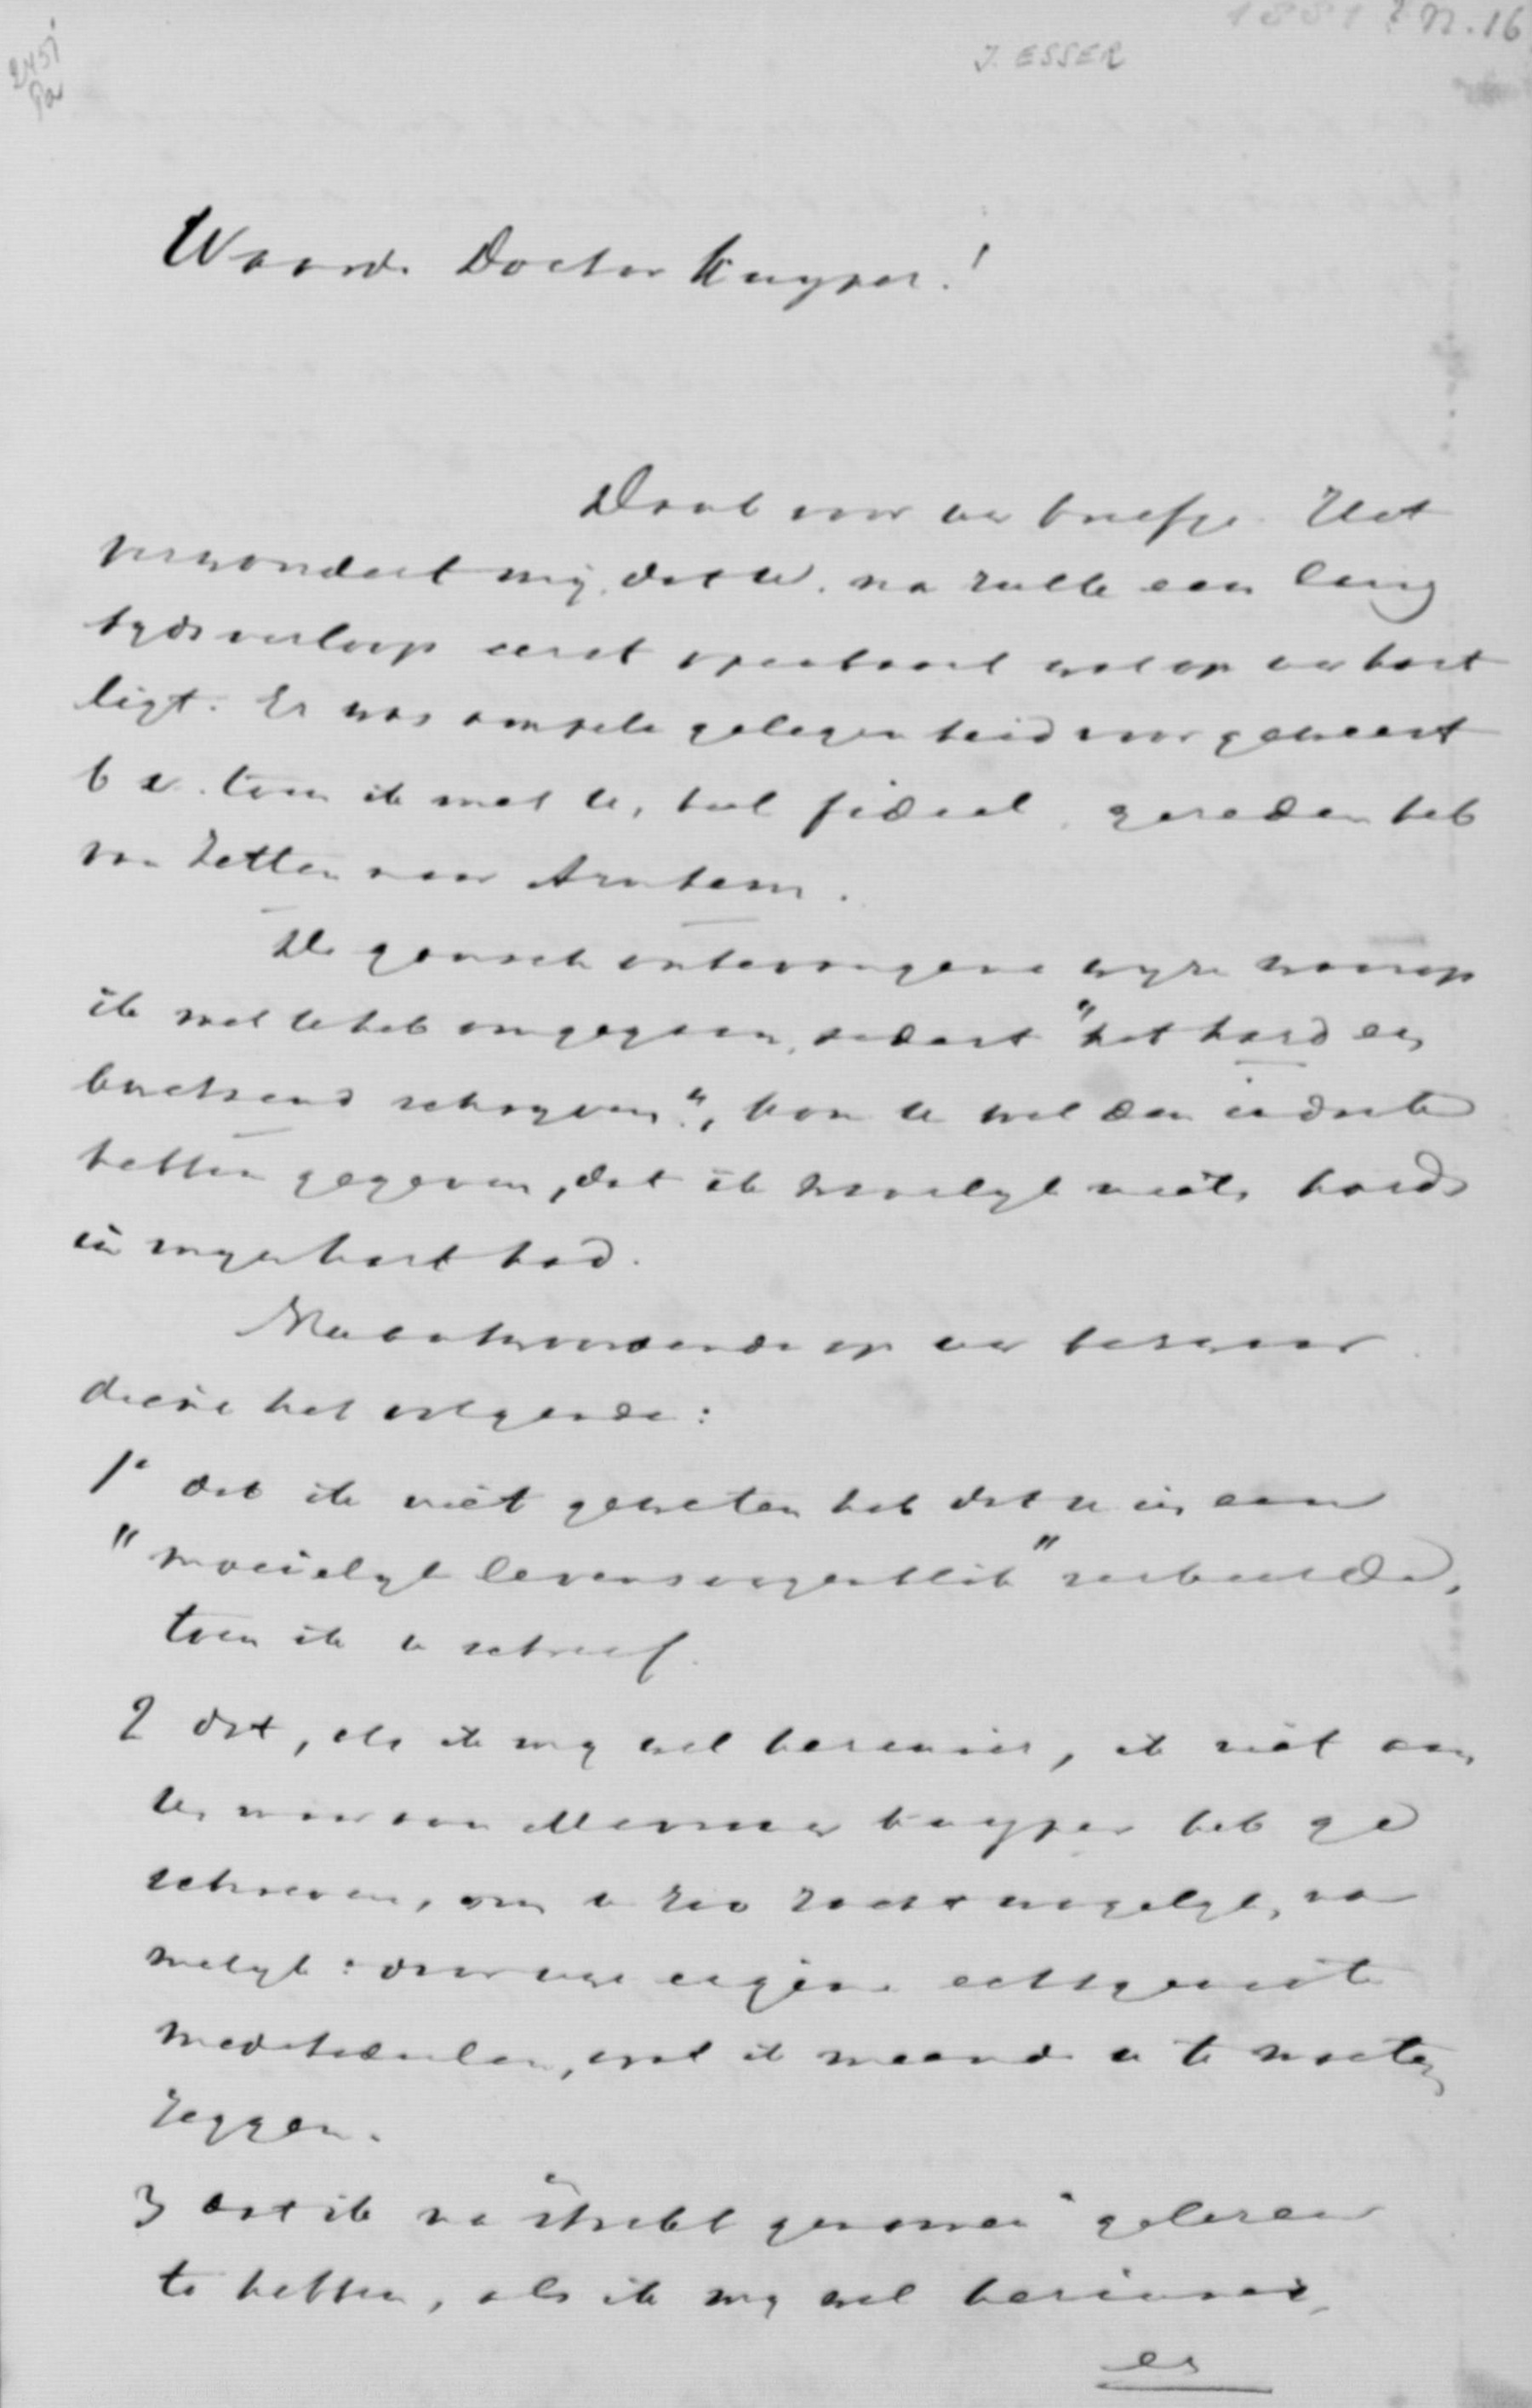 1881? n. 16
J. ESSER
Waarde Doctor Kuyper!
Dank voor uw briefje. Het
verwondert mij, dat U, na zulk een lang
tydsverloop eerst openbaart wat op uw hart
ligt. Er was ampele gelegenheid voor geweest
b.v. toen ik met U, heel fideel, gereden heb
van Zetten naar Arnhem.
De gansch onbevangene wyze waarop
ik met U heb omgegaan, sedert "het hard en
kretsend schryven", kon U wel den indruk
hebben gegeven, dat ik waarlyk niets hards
in myn hart had.
Nu antwoordende op uw bezwaar
diene het volgende:
1° dat ik niet geweten heb dat U in een
"moeielyk levensoogenblik" verkeerde,
toen ik U schreef.
2 dat, als ik my wel herinner, ik niet aan
U, maar aan Mevrouw Kuyper heb ge
schreven, om U zoo zacht mogelyk, na
melyk: door uwe eigene echtgenoote
medetedeelen, wat ik meende U te moeten
zeggen.
3 dat ik na "strikt genomen" gelezen
te hebben, als ik my wel herinner,
er